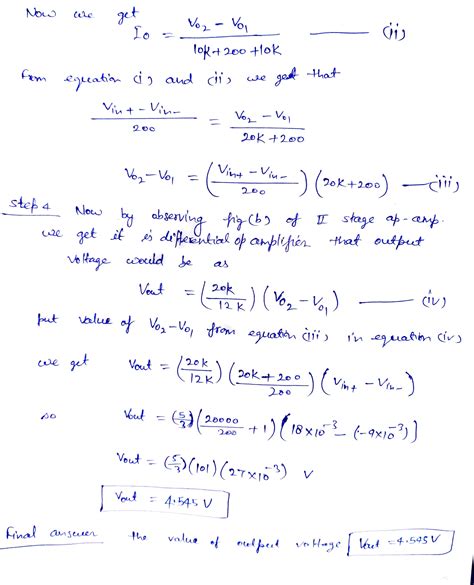 Now we get
Io = (Vo2 - Vo1) / (10k + 200 + 10k) —— (ii)
from equation (i) and (ii) we get that
(Vin+ - Vin-) / 200 = (Vo2 - Vo1) / (20k + 200)
Vo2 - Vo1 = ((Vin+ - Vin-) / 200) (20k + 200) — (iii)
step 4 Now by observing fig (b) of II stage op-amp.
we get it is differential op amplifier that output
voltage would be as
Vout = (20k / 12k) (Vo2 - Vo1) —— (iv)
put value of Vo2 - Vo1 from equation (iii) in equation (iv)
we get Vout = (20k / 12k) ((20k + 200) / 200) (Vin+ - Vin-)
so Vout = (5/3) (20000 / 200 + 1) (18×10^-3 - (-9×10^-3))
Vout = (5/3) (101) (27×10^-3) V
Vout = 4.545 V
Final answer the value of output voltage Vout = 4.545 V